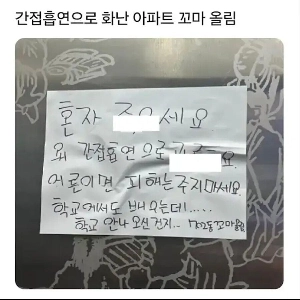 간접흡연으로 화난 아파트 꼬마 올림
혼자 세요
왜 간접흡연으로 요.
어른이면 피해는 주지마세요.
학교에서도 배우는데!.....
학교 안나오신건지.. 꼬마올림